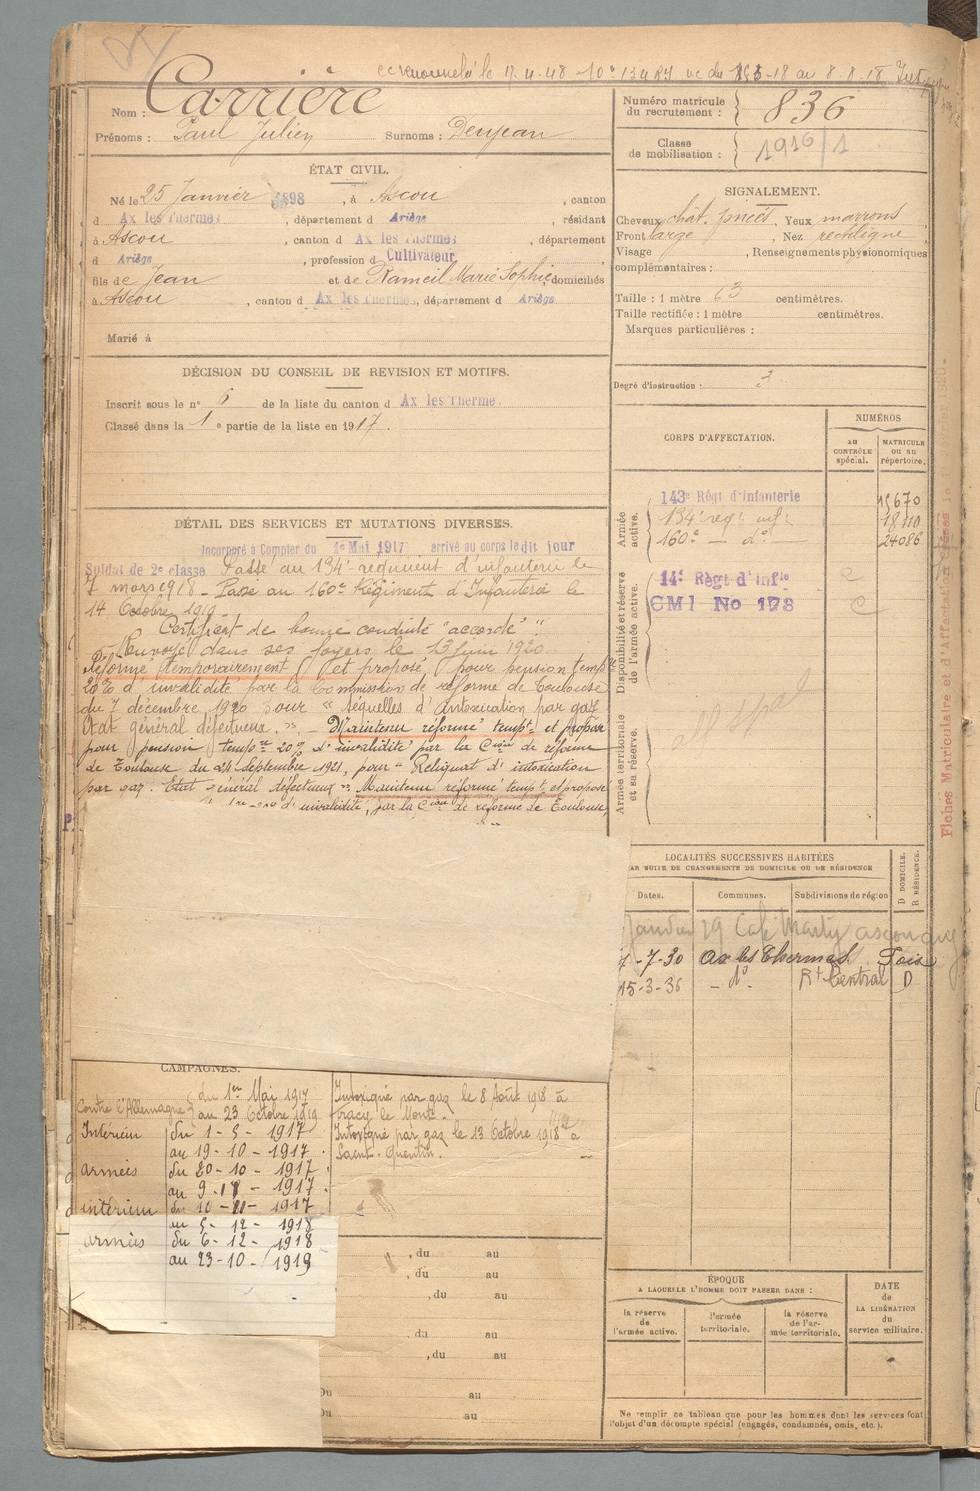 renouvelé le 17-4-48 - 10e 134 RI uc du 8-3-18 au 8-8-18
Nom : Carrière
Prénoms : Paul Julien Surnoms : Denjean
Numéro matricule du recrutement : 836
Classe de mobilisation : 1916/1
ÉTAT CIVIL.
Né le 25 Janvier 1898, à Ascou, canton
d Ax les Thermes, département d Ariège, résidant
à Ascou, canton d Ax les Thermes, département
d Ariège, profession d Cultivateur
fils de Jean et de Rameil Marie Sophie, domiciliés
à Ascou, canton d Ax les Thermes, département d Ariège
Marié à
SIGNALEMENT.
Cheveux chât. foncés, Yeux marrons
Front large, Nez rectiligne
Visage , Renseignements physionomiques
complémentaires :
Taille : 1 mètre 63 centimètres.
Taille rectifiée : 1 mètre centimètres.
Marques particulières :
Degré d'instruction : 3
DÉCISION DU CONSEIL DE REVISION ET MOTIFS.
Inscrit sous le n° 6 de la liste du canton d Ax les Thermes.
Classé dans la 1e partie de la liste en 1917.
DÉTAIL DES SERVICES ET MUTATIONS DIVERSES.
Incorporé à Compter du 1e Mai 1917 arrivé au corps le dit jour
Soldat de 2e classe Passé au 134e régiment d'infanterie le
7 mars 1918 - Passé au 160e Régiment d'Infanterie le
14 Octobre 1919
Certificat de bonne conduite "accordé".
Renvoyé dans ses foyers le 13 juin 1920
Réformé temporairement et proposé pour pension tempre
20% d'invalidité par la Commission de réforme de Toulouse
du 7 décembre 1920 pour "séquelles d'intoxication par gaz
état général défectueux." - Maintenu réformé tempt et proposé
pour pension tempre 20% d'invalidité par la Cion de réforme
de Toulouse du 24 septembre 1921, pour "Reliquat d'intoxication
par gaz. Etat général défectueux". Maintenu réformé tempt et proposé
d'invalidité, par la Cion de réforme de Toulouse,
CORPS D'AFFECTATION.
NUMÉROS
AU CONTRÔLE spécial.
MATRICULE OU AU répertoire.
Armée active.
143e Régt d'Infanterie 15670
134e régt inf. 18110
160e — d° — 24086
Disponibilité et réserve de l'armée active.
14e Règt d'Infie
CMI No 178
Armée territoriale et sa réserve.
Fiches Matriculaire et d'Affectation
LOCALITÉS SUCCESSIVES HABITÉES
PAR SUITE DE CHANGEMENTS DE DOMICILE OU DE RÉSIDENCE
Dates. Communes. Subdivisions de région
D DOMICILE. R RÉSIDENCE.
Janvier 29 Café Marty Ascou
-7-30 Ax les Thermes Foix
15-3-36 - d°. Rt Central D
CAMPAGNES.
Contre l'Allemagne du 1er Mai 1917
au 23 Octobre 1919
Intérieur du 1-5-1917
au 19-10-1917
armées du 20-10-1917
au 9-11-1917
intérieur du 10-11-1917
au 5-12-1918
armées du 6-12-1918
au 23-10-1919
Intoxiqué par gaz le 8 Août 1918 à
Tracy le Mont.
Intoxiqué par gaz le 13 Octobre 1918 à
Saint-Quentin.
, du au
, du au
, du au
, du au
, du au
Du au
Du au
ÉPOQUE
A LAQUELLE L'HOMME DOIT PASSER DANS :
la réserve de l'armée active.
l'armée territoriale.
la réserve de l'armée territoriale.
DATE de LA LIBÉRATION du service militaire.
Ne remplir ce tableau que pour les hommes dont les services font
l'objet d'un décompte spécial (engagés, condamnés, omis, etc.).